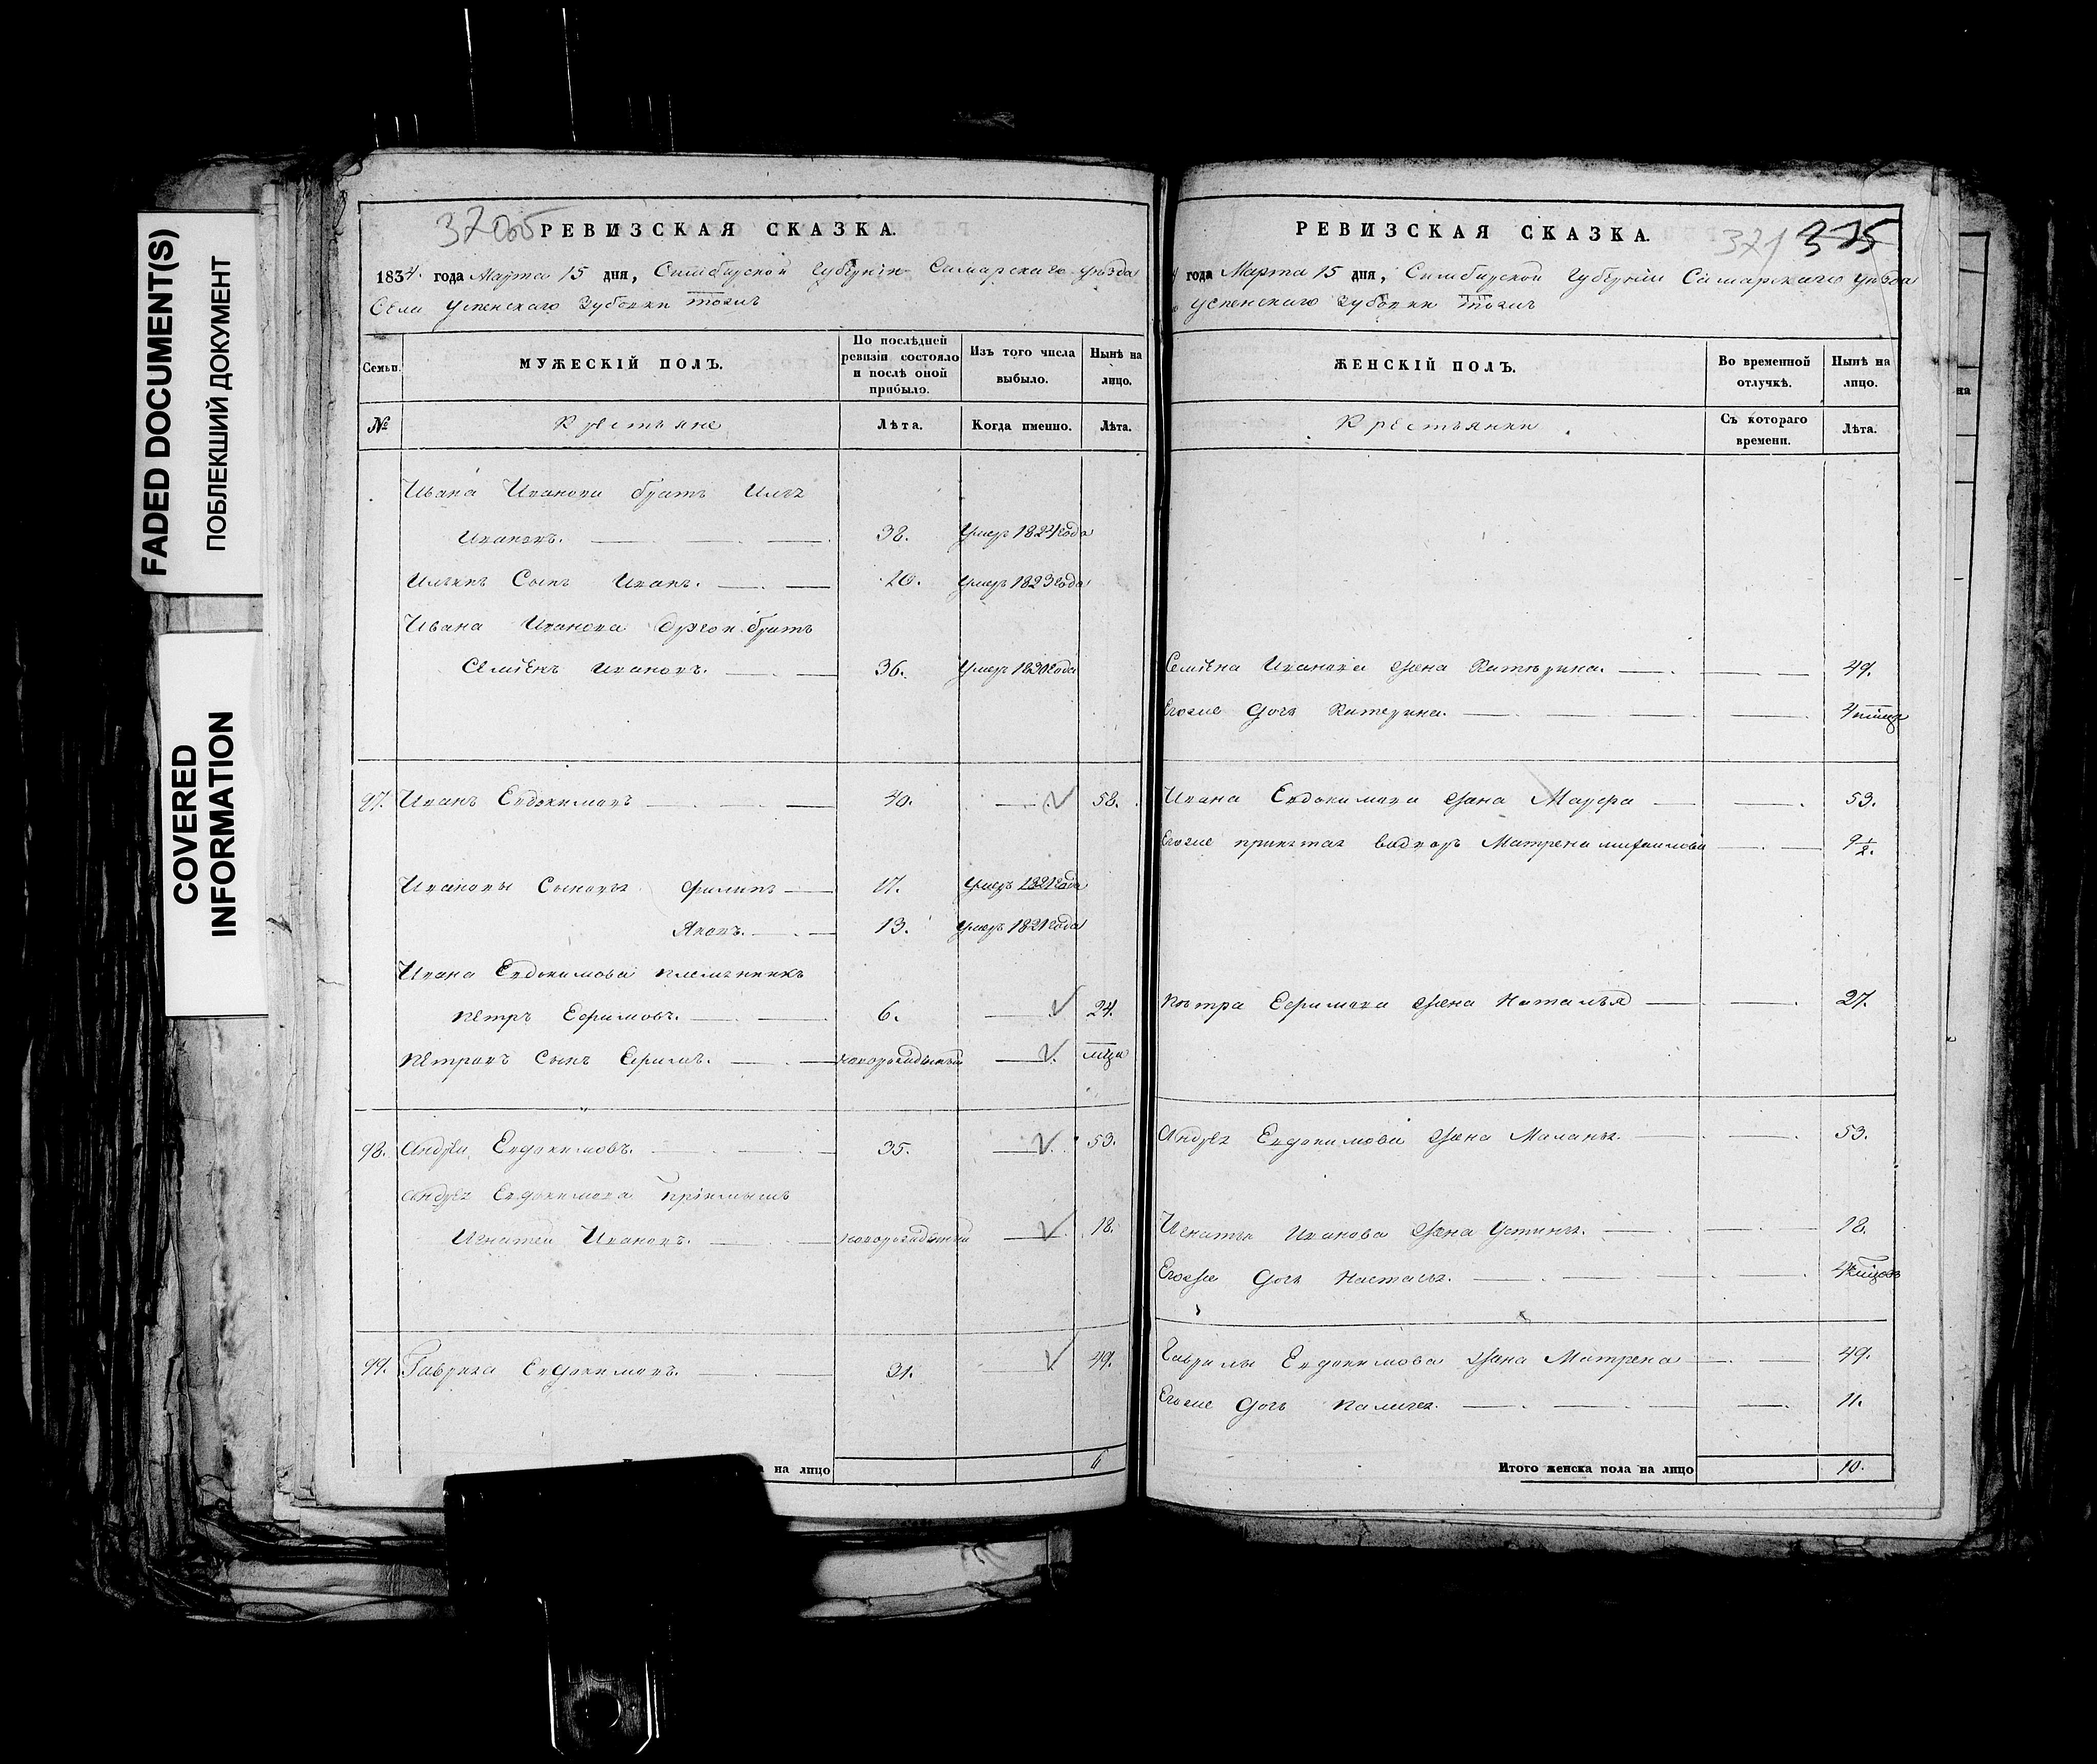 FADED DOCUMENT(S)
ПОБЛЕКШИЙ ДОКУМЕНТ
COVERED
INFORMATION
РЕВИЗСКАЯ СКАЗКА.
1834. года Марта 15 дня, Симбирской Губернiи Самарскаго уѣзда
Села Успенскаго Губовки тожъ
Семьи.
МУЖЕСКIЙ ПОЛЪ.
По послѣдней ревизiи состояло и послѣ оной прибыло.
Изъ того числа выбыло.
Нынѣ на лицо.
№
Крестьяне
Лѣта.
Когда именно.
Лѣта.
Ивана Иванова братъ Илья
Ивановъ. 38. Умеръ 1824 года
Ильинъ Сынъ Иванъ. 20. Умеръ 1823 года
Ивана Иванова другой братъ
Семiенъ Ивановъ. 36. Умеръ 1830 года
97. Иванъ Евдокимовъ 40. 58.
Ивановы Сыновья Филипъ 17. Умеръ 1821 года
Яковъ. 13. Умеръ 1821 года
Ивана Евдокимова племянникъ
Петръ Ефимовъ. 6. 24.
Петровъ Сынъ Ефимъ. новорожденный
98. Андрей Евдокимовъ. 35. 53.
Андрея Евдокимова прiемышъ
Игнатей Ивановъ. новорожденный 18.
99. Гаврила Евдокимовъ. 31. 49.
на лицо 6
РЕВИЗСКАЯ СКАЗКА.
371 375
года Марта 15 дня, Симбирской Губернiи Самарскаго уѣзда
Успенскаго Губовки тожъ
ЖЕНСКIЙ ПОЛЪ.
Во временной отлучкѣ.
Нынѣ на лицо.
Крестьянки
Съ котораго времени.
Лѣта.
Семiена Иванова жена Катерина. 49.
Егоже дочь Катерина.
Ивана Евдокимова жена Мавра 53.
Егоже Матрена Михайлова 9 1/2.
Петра Ефимова жена Наталья 27.
Андрея Евдокимова жена Маланья. 53.
Игнатья Иванова жена Устинья. 18.
Егоже дочь Настасья.
Гаврилы Евдокимова жена Матрена 49.
Егоже дочь Палагея. 11.
Итого женска пола на лицо 10.